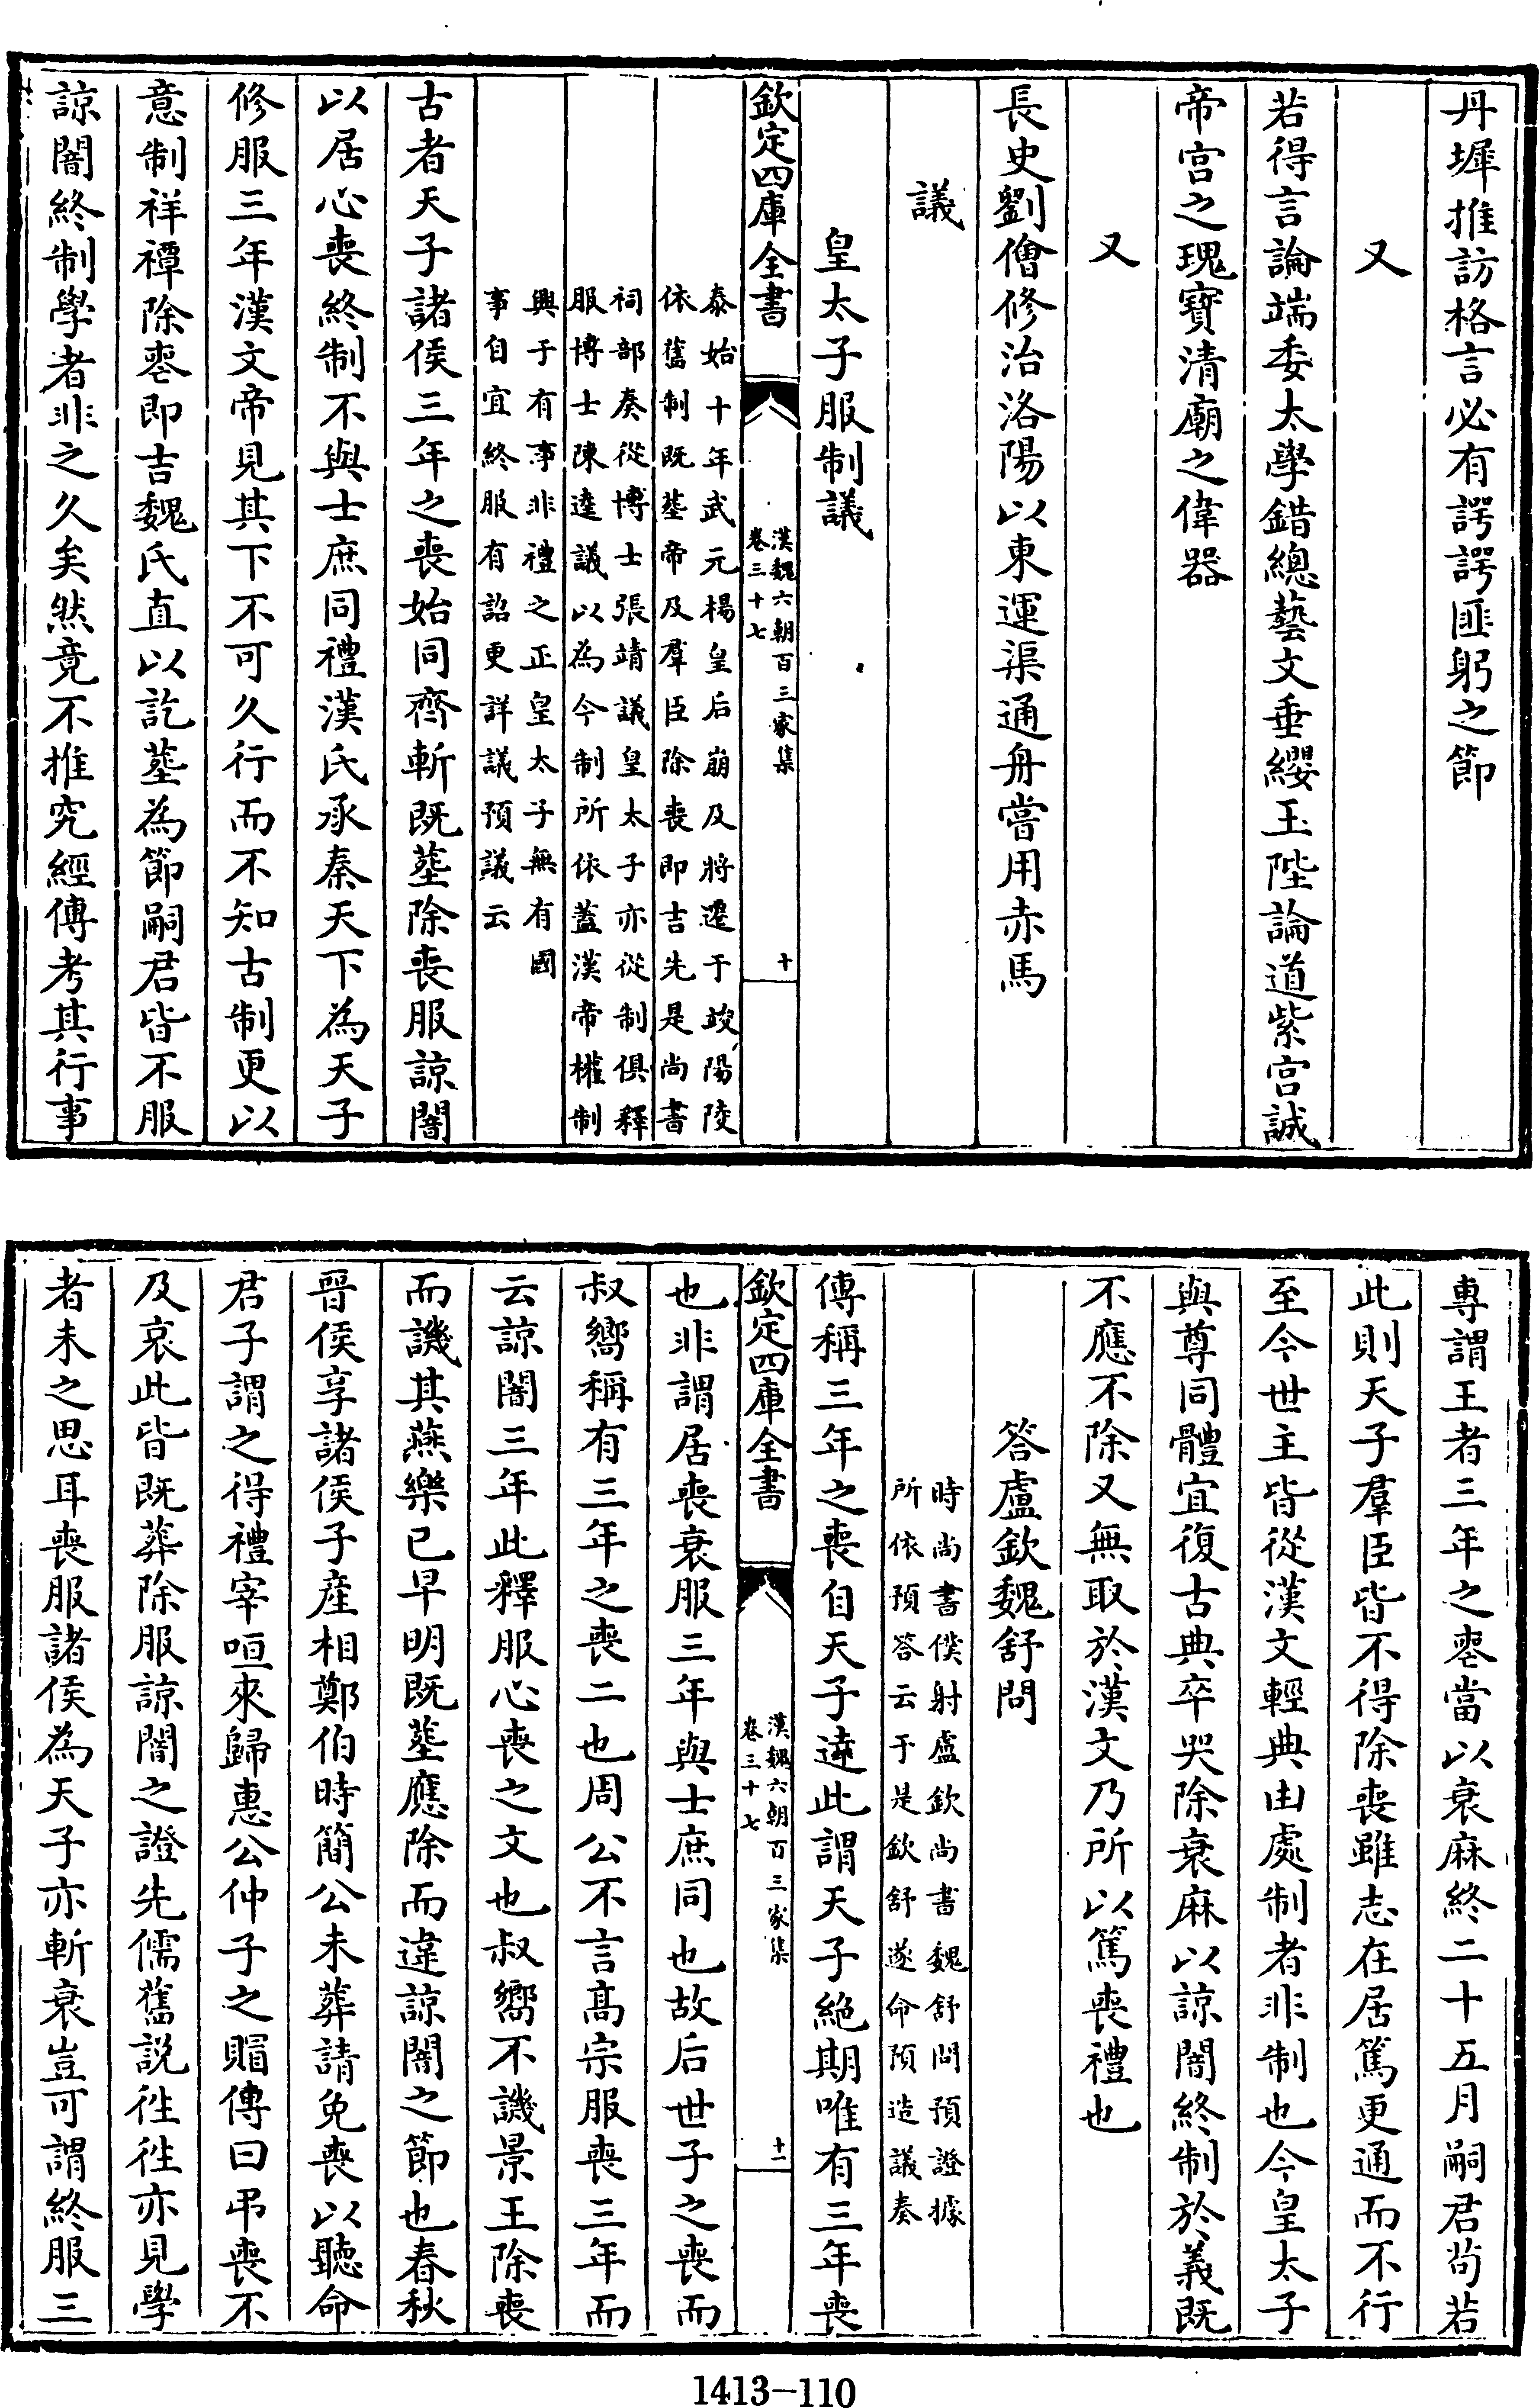 丹墀推訪格言必有諤諤匪躬之節
又
若得言論端委太學錯總藝文垂纓玉陛論道紫宫誠
帝宫之瑰寶清廟之偉器
又
長史劉僧修治洛陽以東運渠通舟嘗用赤馬
議
皇太子服制議
欽定四庫全書
漢魏六朝百三家集
卷三十七
十
泰始十年武元楊皇后崩及將遷于竣陽陵
依舊制既塟帝及羣臣除喪即吉先是尚書
祠部奏從博士張靖議皇太子亦從制俱釋
服博士陳逵議以為今制所依蓋漢帝權制
興于有事非禮之正皇太子無有國
事自宜終服有詔更詳議預議云
古者天子諸侯三年之喪始同齊斬既塟除喪服諒闇
以居心喪終制不與士庶同禮漢氏承秦天下為天子
修服三年漢文帝見其下不可久行而不知古制更以
意制祥禫除喪即吉魏氏直以訖塟為節嗣君皆不服
諒闇終制學者非之久矣然竟不推究經傳考其行事
專謂王者三年之喪當以衰麻終二十五月嗣君苟若
此則天子羣臣皆不得除喪雖志在居篤更通而不行
至今世主皆從漢文輕典由處制者非制也今皇太子
與尊同體宜復古典卒哭除衰麻以諒闇終制於義既
不應不除又無取於漢文乃所以篤喪禮也
答盧欽魏舒問
時尚書僕射盧欽尚書魏舒問預證據
所依預答云于是欽舒遂命預造議奏
傳稱三年之喪自天子達此謂天子絶期唯有三年喪
欽定四庫全書
漢魏六朝百三家集
卷三十七
十一
也非謂居喪衰服三年與士庶同也故后世子之喪而
叔嚮稱有三年之喪二也周公不言高宗服喪三年而
云諒闇三年此釋服心喪之文也叔嚮不譏景王除喪
而譏其燕樂已早明既塟應除而違諒闇之節也春秋
晉侯享諸侯子産相鄭伯時簡公未葬請免喪以聽命
君子謂之得禮宰咺來歸惠公仲子之賵傳曰弔喪不
及哀此皆既葬除服諒闇之證先儒舊説徃徃亦見學
者未之思耳喪服諸侯為天子亦斬衰豈可謂終服三
1413—110